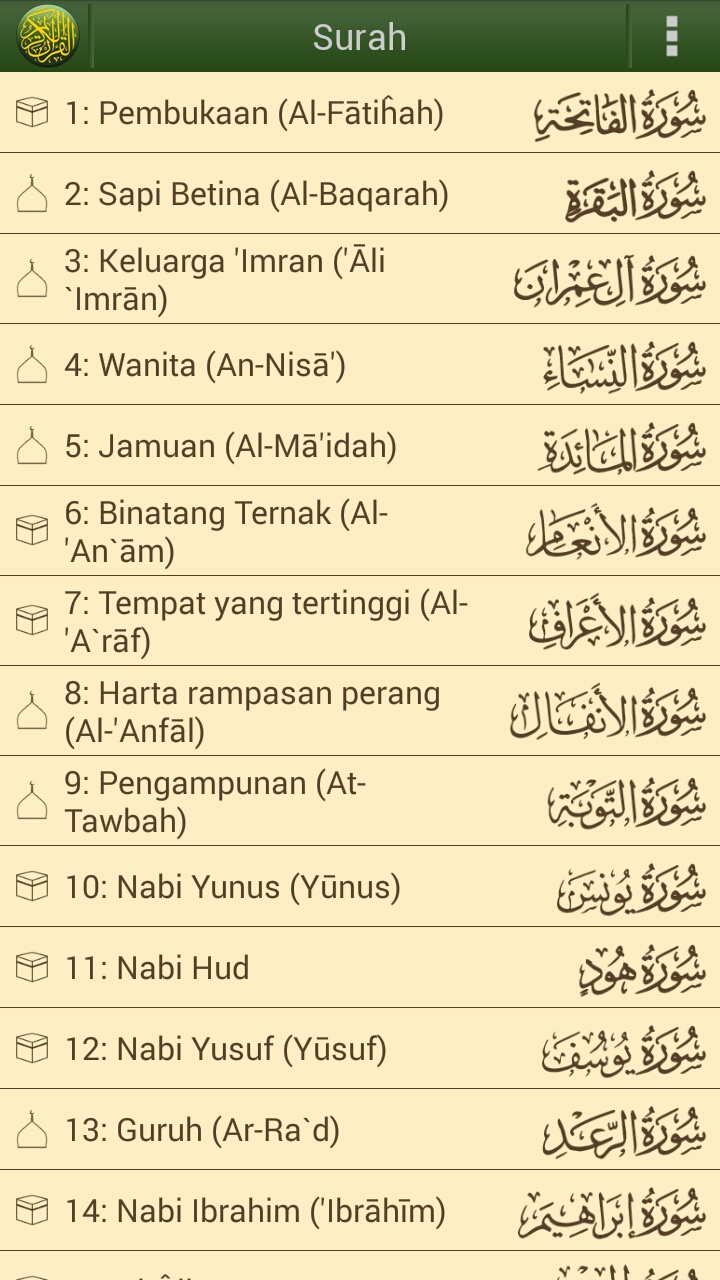 Surah
1: Pembukaan (Al-Fātiĥah) سُورَةُ الفَاتِحَةِ
2: Sapi Betina (Al-Baqarah) سُورَةُ البَقَرَةِ
3: Keluarga 'Imran ('Āli
`Imrān) سُورَةُ آلِ عِمْرَان
4: Wanita (An-Nisā') سُورَةُ النِّسَاءِ
5: Jamuan (Al-Mā'idah) سُورَةُ المَائِدَةِ
6: Binatang Ternak (Al-
'An`ām) سُورَةُ الأَنْعَامِ
7: Tempat yang tertinggi (Al-
'A`rāf) سُورَةُ الأَعْرَافِ
8: Harta rampasan perang
(Al-'Anfāl) سُورَةُ الأَنفَالِ
9: Pengampunan (At-
Tawbah) سُورَةُ التَّوْبَةِ
10: Nabi Yunus (Yūnus) سُورَةُ يُونُسَ
11: Nabi Hud سُورَةُ هُودٍ
12: Nabi Yusuf (Yūsuf) سُورَةُ يُوسُفَ
13: Guruh (Ar-Ra`d) سُورَةُ الرَّعْدِ
14: Nabi Ibrahim ('Ibrāhīm) سُورَةُ إِبْرَاهِيمَ